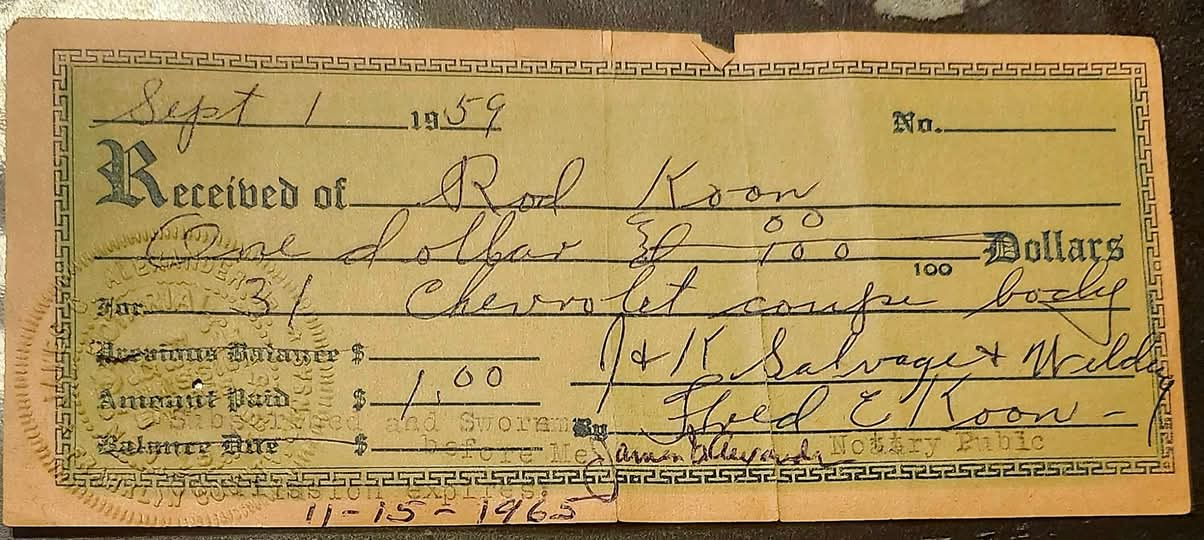 Sept 1 1959 No.
Received of Rod Koon
One dollar & 00/100 100 Dollars
For 31 Chevrolet coupe body
Previous Balance $ J & K Salvage & Wilding
Amount Paid $ 1.00
Subscribed and Sworn By Fred E Koon -
Balance Due $ before Me James Alexander Notary Pubic
Commission expires:
11-15-1965
ALEXANDER